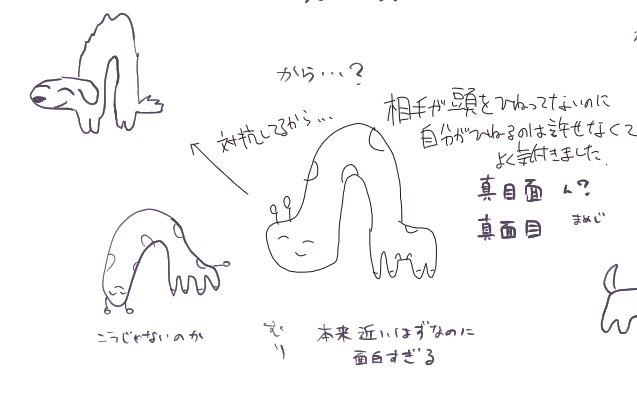 から…?
相手が頭をひねってないのに
自分がひねるのは許せなくて
よく気付きました.
対抗してるから…
真目面 ん?
真面目 まめじ
こうじゃないのか
むり
本来近いはずなのに
面白すぎる